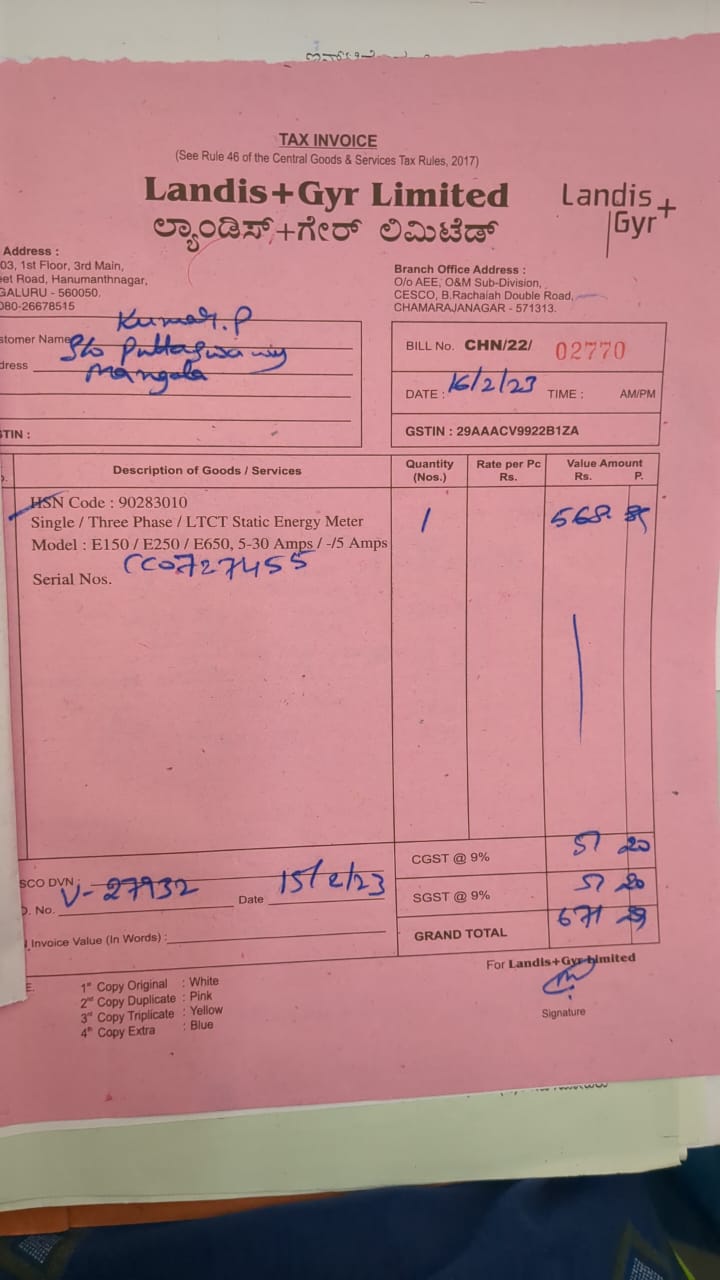 TAX INVOICE
(See Rule 46 of the Central Goods & Services Tax Rules, 2017)
Landis+Gyr Limited
ಲ್ಯಾಂಡಿಸ್+ಗೇರ್ ಲಿಮಿಟೆಡ್
Landis
Gyr+
Address :
03, 1st Floor, 3rd Main,
eet Road, Hanumanthnagar,
GALURU - 560050.
080-26678515
Branch Office Address :
O/o AEE, O&M Sub-Division,
CESCO, B.Rachaiah Double Road,
CHAMARAJANAGAR - 571313.
stomer Name Kumar. P
dress S/o Puttaswamy
Mangala
STIN :
BILL No. CHN/22/ 02770
DATE : 16/2/23 TIME : AM/PM
GSTIN : 29AAACV9922B1ZA
Description of Goods / Services Quantity (Nos.) Rate per Pc Rs. Value Amount Rs. P.
HSN Code : 90283010
Single / Three Phase / LTCT Static Energy Meter 1 568
Model : E150 / E250 / E650, 5-30 Amps / -/5 Amps
Serial Nos. CC0727455
CGST @ 9% 51 20
SCO DVN :
O. No. V-27932 Date 15/2/23
SGST @ 9% 51 20
Invoice Value (In Words) :
GRAND TOTAL 671
For Landis+Gyr Limited
1st Copy Original : White
2nd Copy Duplicate : Pink
3rd Copy Triplicate : Yellow
4th Copy Extra : Blue
Signature